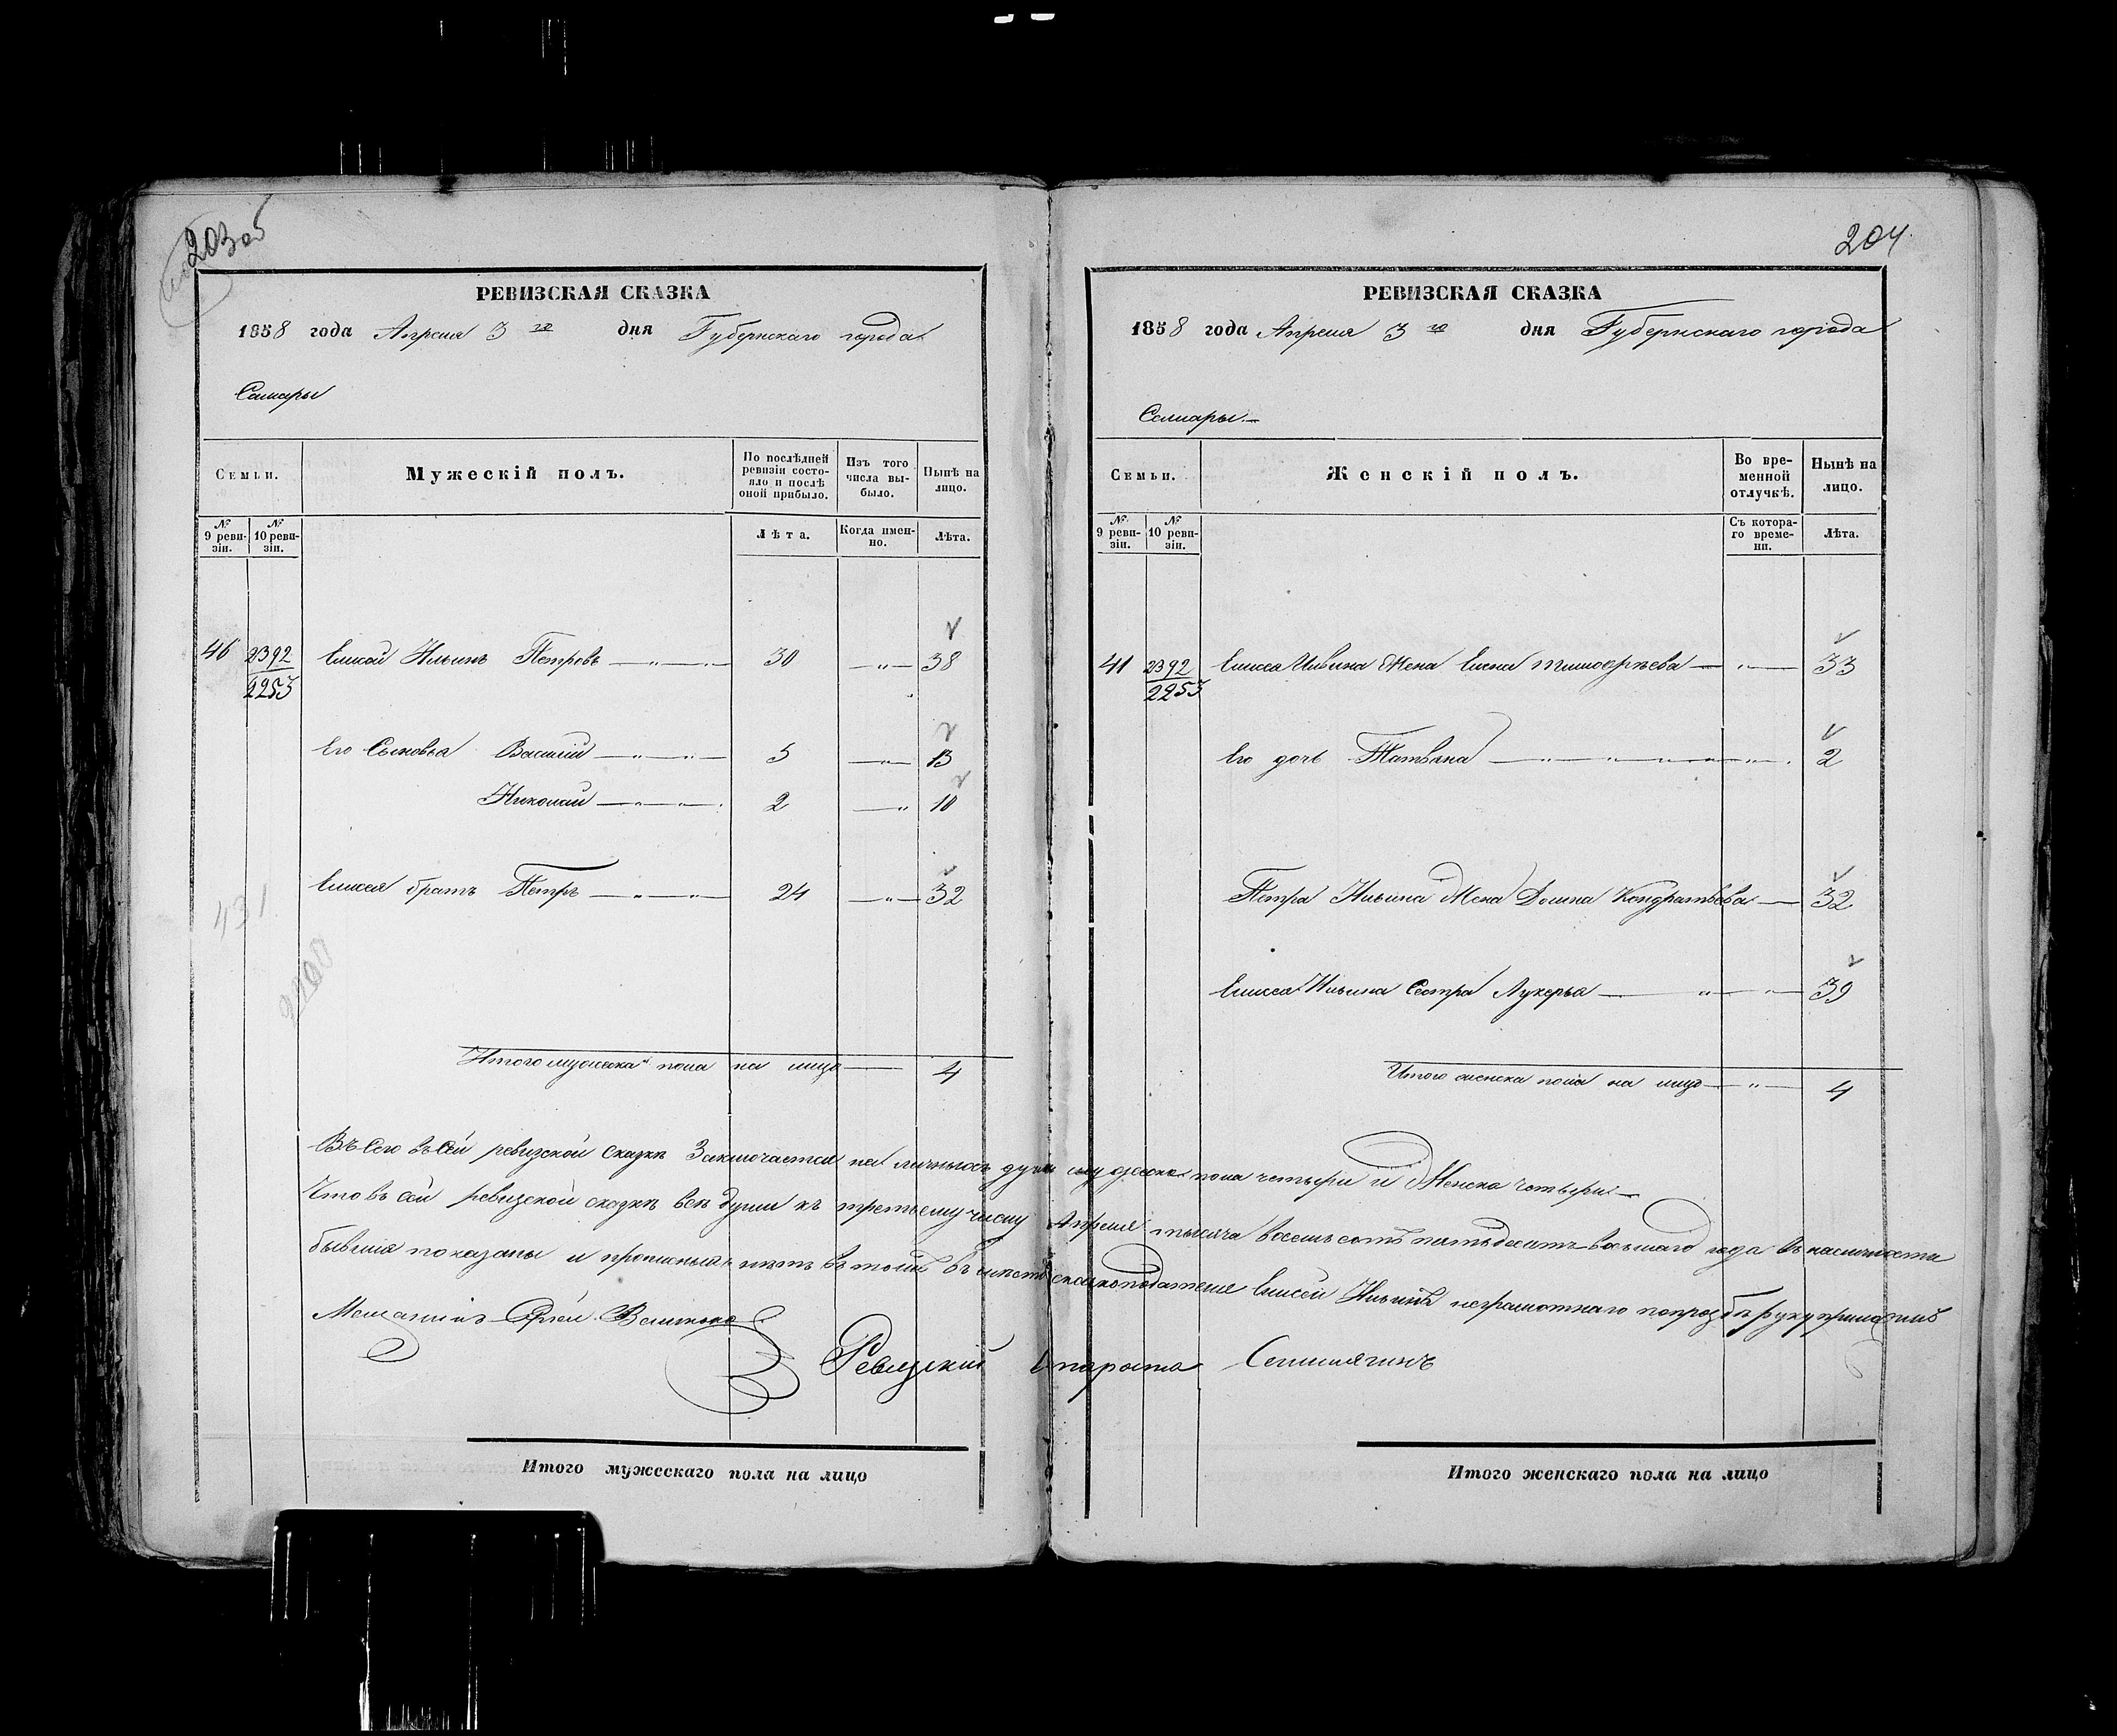 203 об
РЕВИЗСКАЯ СКАЗКА
1858 года Апреля 3 го дня Губернскаго города
Самары
Семьи.
Мужескій полъ.
По послѣдней ревизіи состояло и послѣ оной прибыло.
Изъ того числа выбыло.
Нынѣ на лицо.
№ 9 ревизіи.
№ 10 ревизіи.
Лѣта.
Когда именно.
Лѣта.
46 2392 Елисей Ильинъ Петровъ — " — 30 — " — 38
2253
Его Сыновья Василий — " — " — 5 — " — 13
Николай — " — " — 2 — " 10
Елисея братъ Петръ — " — " — 24 — " — 32
431
Итого мужеска пола на лицо — 4
204
РЕВИЗСКАЯ СКАЗКА
1858 года Апреля 3 го дня Губернскаго города
Самары. —
Семьи.
Женскій полъ.
Во временной отлучкѣ.
Нынѣ на лицо.
№ 9 ревизіи.
№ 10 ревизіи.
Съ котораго времени.
Лѣта.
41 2392 Елисея Ильина Жена Елена Тимофѣева — " — 33
2253
Его дочь Татьяна — " — " — " — 2
Петра Ильина Жена Домна Кондратьева — 32
Елисея Ильина Сестра Лукерья — " — " — 39
Итого женска пола на лицо — " — 4
сей ревизской сказкѣ Заключается на личныхъ душъ мужеска пола четыри и Женска четыри —
Что въ сей ревизской сказкѣ все души къ третьему числу Апреля тысяча восемьсотъ пятьдесятъ восьмаго года въ наличности
бывшия показаны и прописныхъ нѣтъ въ томъ въ место сказкоподателя Елисея Ильина неграмотнаго попрозбѣ руку приложилъ
Мещанинъ
Ревизский Староста
Итого мужескаго пола на лицо
Итого женскаго пола на лицо